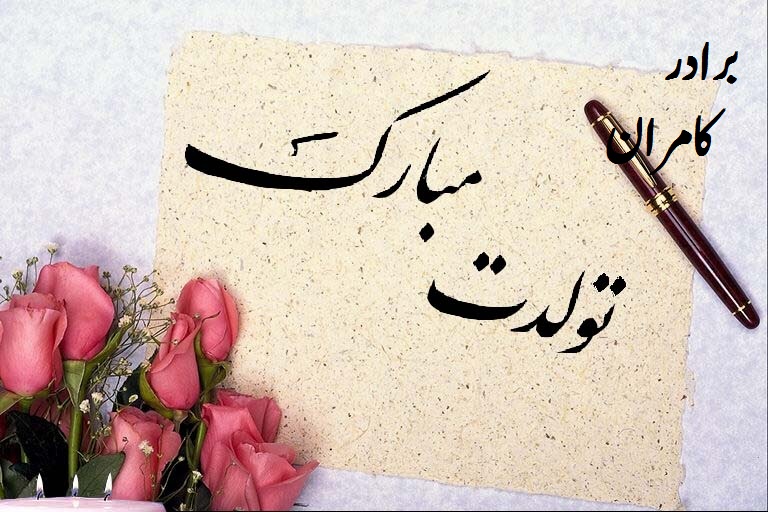 برادر
کامران
تولدت
مبارک